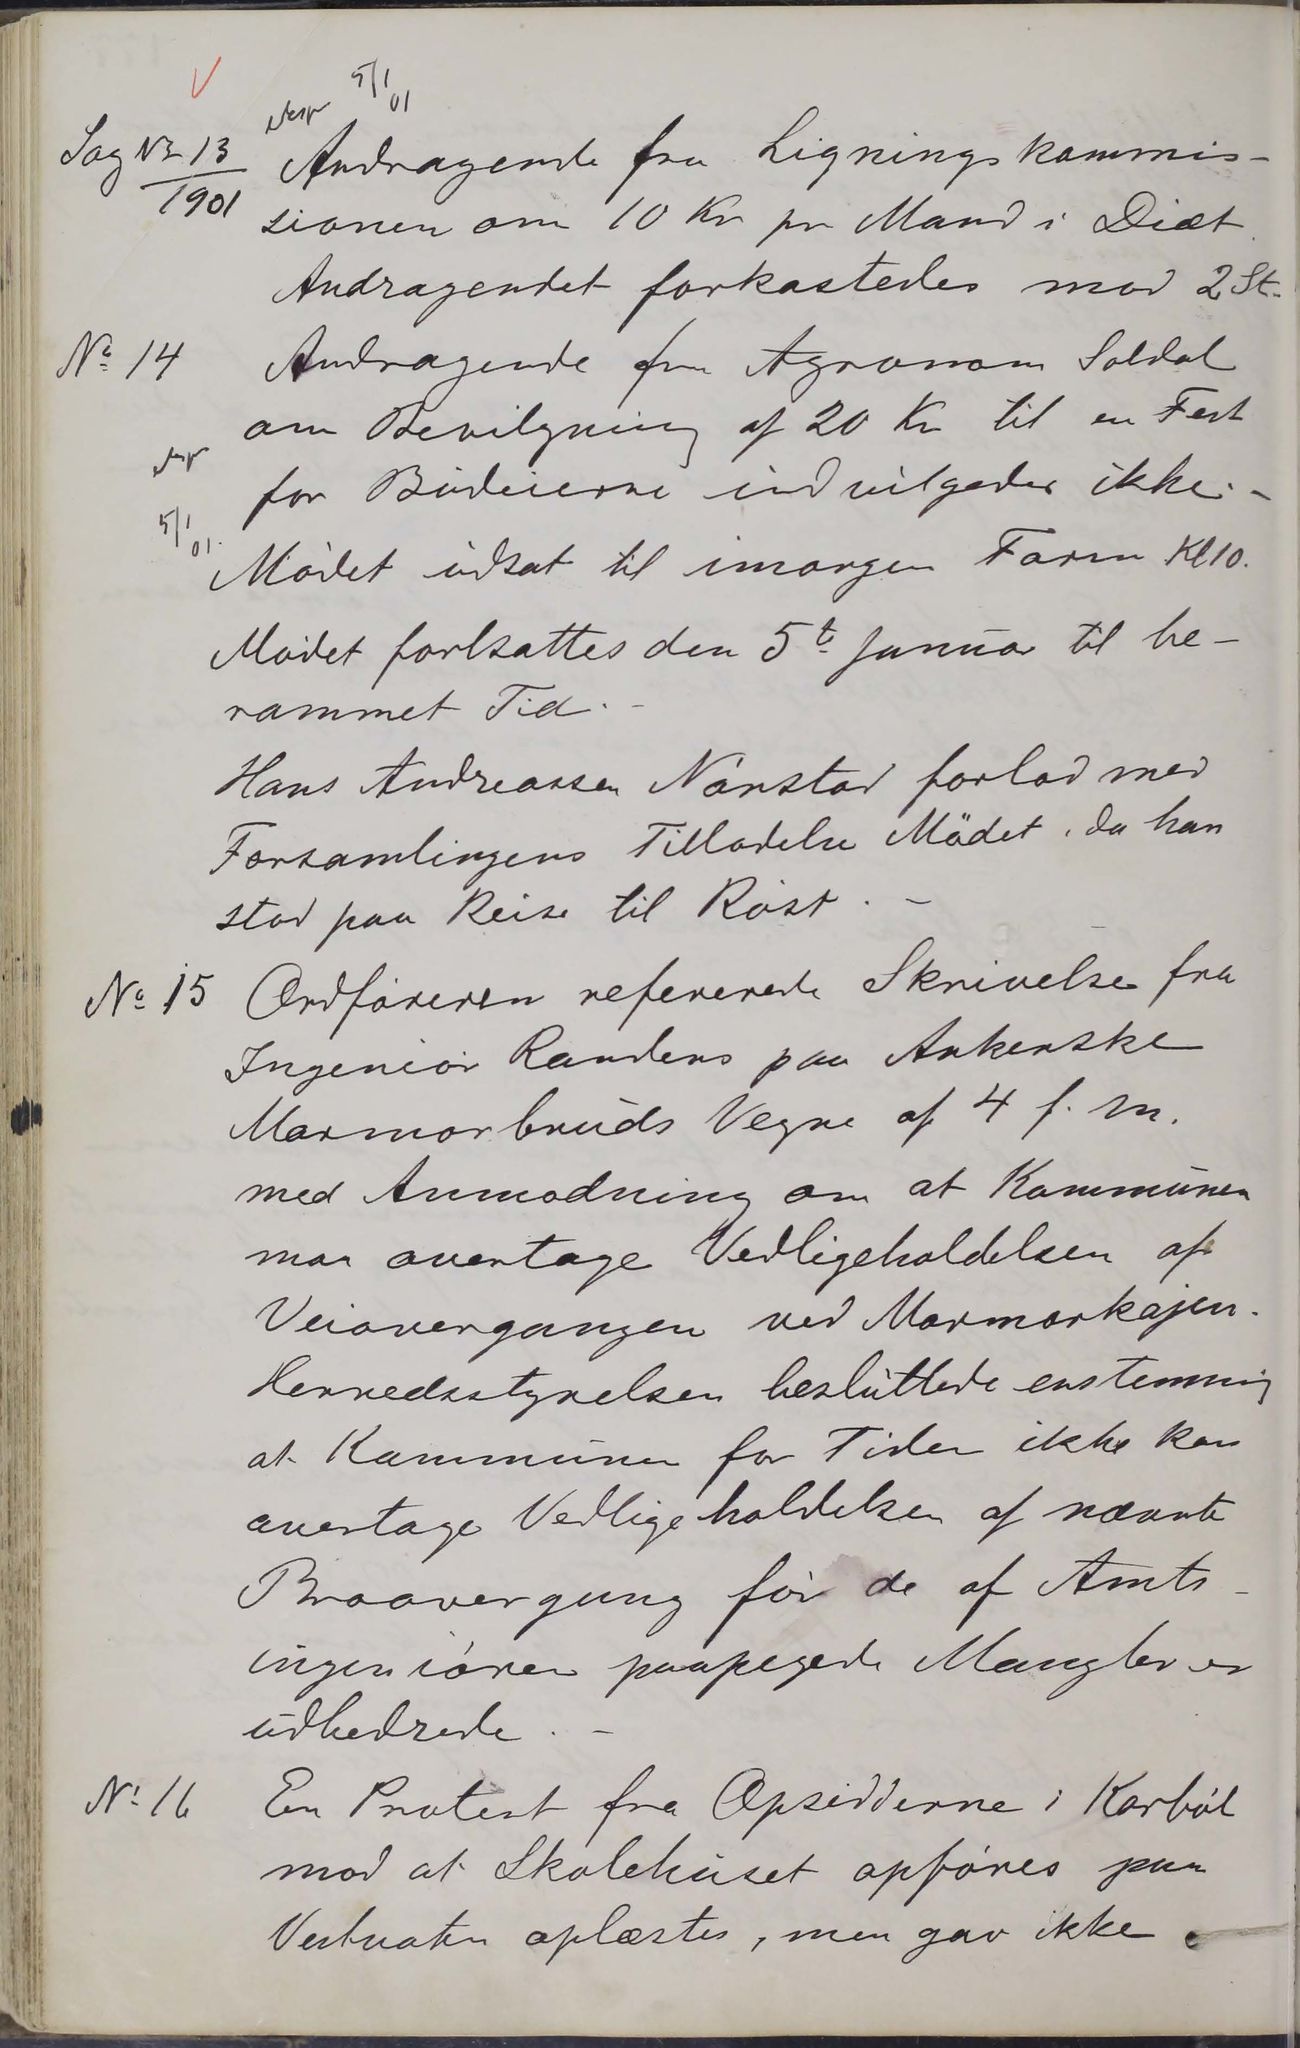 Desp 5/1 01
Sag No 13 / 1901
Andragende fra Ligningskommis-
sionen om 10 Kr pr Mand i Diæt.
Andragendet forkastedes mod 2 St.
No 14 Andragende fra Agronom Soldal
om Bevilgning af 20 Kr til en Fest
Desp 5/1 01.
for Budeierne indvilgedes ikke. -
Mödet udsat til imorgen Form Kl 10.
Mödet fortsattes den 5te Januar til be-
rammet Tid. -
Hans Andreassen Nórstad forlod med
Forsamlingens Tilladelse Mödet, da han
stod paa Reise til Röst. -
No 15 Ordföreren refererede Skrivelse fra
Ingeniör Randers paa Ankerske
Marmorbruds Vegne af 4 f. m.
med Anmodning om at Kommunen
maa overtage Vedligeholdelsen af
Veiovergangen ved Marmorkajen.
Herredsstyrelsen besluttede enstemmig
at Kommunen for Tiden ikke kan
overtage Vedligeholdelsen af nævnte
Broovergang för de af Amts-
ingeniören paapegede Mangler er
udbedrede. -
No 16 En Protest fra Opsidderne i Karból
mod at Skolehuset opföres paa
Vestvaten oplæstes, men gav ikke